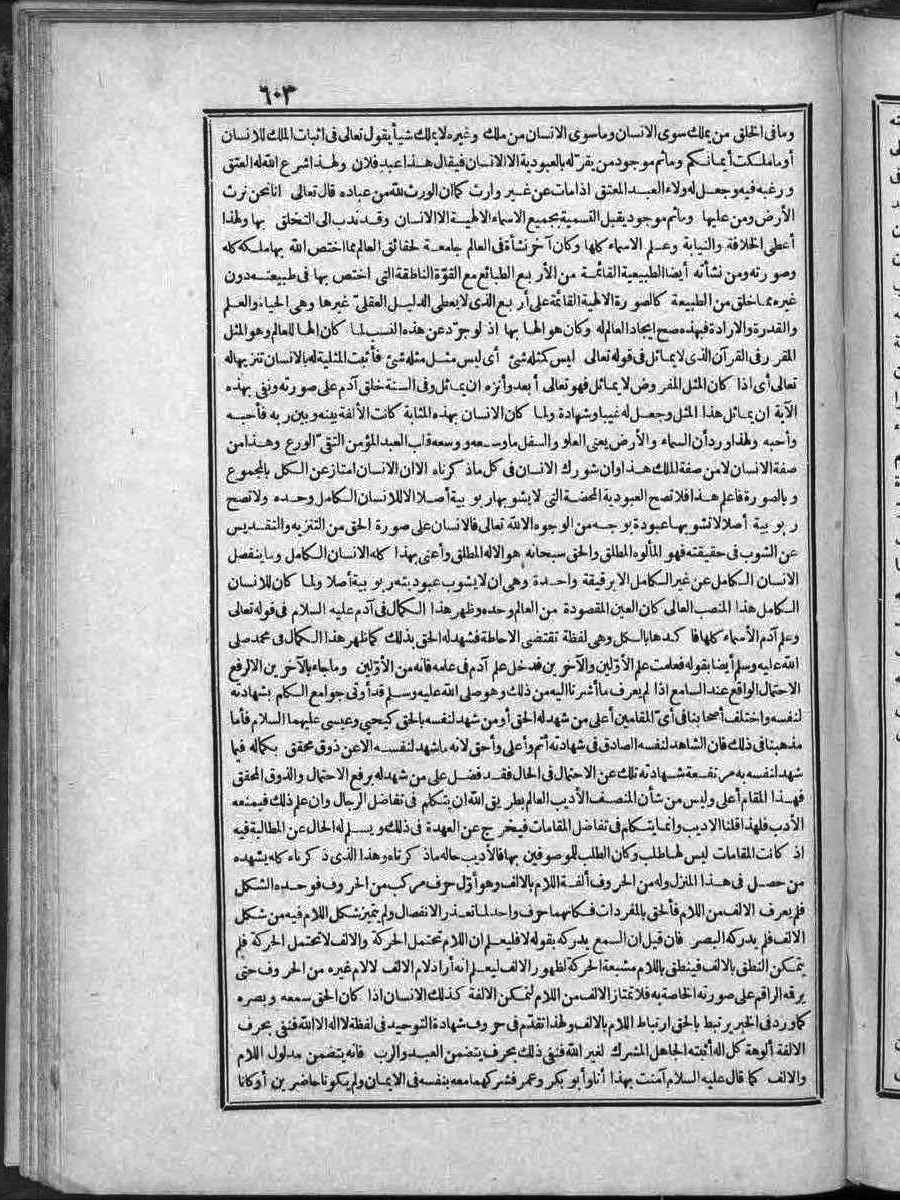 ٦٠٣
وما فى الخلق من يملك سوى الانسان وما سوى الانسان من ملك وغيره لا يملك شيأ يقول تعالى فى اثبات الملك للانسان
أو ما ملكت أيمانكم وما ثم موجود من يقر له بالعبودية الا الانسان فيقال هذا عبد فلان ولهذا شرع الله له العتق
ورغبه فيه وجعل له ولاء العبد المعتق اذا مات عن غير وارث كما ان الورث لله من عباده قال تعالى انا نحن نرث
الأرض ومن عليها وما ثم موجود يقبل التسمية بجميع الاسماء الالهية الا الانسان وقد ندب الى التخلق بها ولهذا
أعطى الخلافة والنيابة وعلم الاسماء كلها وكان آخر نشأة فى العالم جامعة لحقائق العالم مما اختص الله بها ملكه كله
وصورته ومن نشأته أيضا الطبيعية القائمة من الأربع الطبائع مع القوّة الناطقة التى اختص بها فى طبيعته دون
غيره مما خلق من الطبيعة كالصورة الالهية القائمة على أربع الذى لا يعطى الدليل العقلىّ غيرها وهى الحياة والعلم
والقدرة والارادة فبهذه صح ايجاد العالم له وكان هو الها بها اذ لو جرّد عن هذه النسب لما كان الها للعالم وهو المثل
المقرر فى القرآن الذى لا يماثل فى قوله تعالى ليس كمثله شئ أى ليس مثل مثله شئ فأثبت المثلية له بالانسان تنزيها له
تعالى أى اذا كان المثل المفروض لا يماثل فهو تعالى أبعد وأنزه ان يماثل وفى السنة خلق آدم على صورته ونفى بهذه
الآية ان يماثل هذا المثل وجعل له غيبا وشهادة ولما كان الانسان بهذه المثابة كانت الألفة بينه وبين ربه فأحبه
وأحبه ولهذا ورد أن السماء والأرض يعنى العلو والسفل ما وسعه ووسعه قلب العبد المؤمن التقىّ الورع وهذا من
صفة الانسان لا من صفة الملك هذا وان شورك الانسان فى كل ما ذكرناه الا ان الانسان امتاز عن الكل بالمجموع
وبالصورة فاعلم هذا فلا تصح العبودية المحضة التى لا يشوبها ربوبية أصلا الا للانسان الكامل وحده ولا تصح
ربوبية أصلا لا تشوبها عبودة بوجه من الوجوه الا لله تعالى فالانسان على صورة الحق من التنزيه والتقديس
عن الشوب فى حقيقته فهو المألوه المطلق والحق سبحانه هو الاله المطلق وأعنى بهذا كله الانسان الكامل وما ينفصل
الانسان الكامل عن غير الكامل الا برقيقة واحدة وهى ان لا يشوب عبوديته ربوبية أصلا ولما كان للانسان
الكامل هذا المنصب العالى كان العين المقصودة من العالم وحده وظهر هذا الكمال فى آدم عليه السلام فى قوله تعالى
وعلم آدم الأسماء كلها فأكدها بالكل وهى لفظة تقتضى الاحاطة فشهد له الحق بذلك كما ظهر هذا الكمال فى محمد صلى
الله عليه وسلم أيضا بقوله فعلمت علم الأوّلين والآخرين فدخل علم آدم فى علمه فانه من الأوّلين وما جاء بالآخرين الا لرفع
الاحتمال الواقع عند السامع اذا لم يعرف ما أشرنا اليه من ذلك وهو صلى الله عليه وسلم قد أوتى جوامع الكلم بشهادته
لنفسه واختلف أصحابنا فى أىّ المقامين أعلى من شهد له الحق أو من شهد لنفسه بالحق كيحيى وعيسى عليهما السلام فأما
مذهبنا فى ذلك فان الشاهد لنفسه الصادق فى شهادته أتم وأعلى وأحق لانه ما شهد لنفسه الا عن ذوق محقق بكماله فيما
شهد لنفسه به مرتفعة شهادته تلك عن الاحتمال فى الحال فقد فضل على من شهد له برفع الاحتمال والذوق المحقق
فهذا المقام أعلى وليس من شأن المنصف الأديب العالم بطريق الله ان يتكلم فى تفاضل الرجال وان علم ذلك فيمنعه
الأدب فلهذا قلنا الاديب وانما يتكلم فى تفاضل المقامات فيخرج عن العهدة فى ذلك ويسلم له الحال عن المطالبة فيه
اذ كانت المقامات ليس لها طلب وكان الطلب للموصوفين بها فالأديب حاله ما ذكرناه وهذا الذى ذكرناه كله يشهده
من حصل فى هذا المنزل وله من الحروف ألفة اللام بالالف وهو أوّل حرف مركب من الحروف فوحده الشكل
فلم يعرف الالف من اللام فألحق بالمفردات فكانهما حرف واحد لما تعذر الانفصال ولم يتميز شكل اللام فيه من شكل
الالف فلم يدركه البصر فان قيل ان السمع يدركه بقوله لا فليعلم ان اللام تحتمل الحركة والالف لا تحتمل الحركة فلم
يتمكن النطق بالالف فينطق باللام مشبعة الحركة لظهور الالف ليعلم انه أراد لام الالف لا لام غيره من الحروف حتى
يرقه الراقم على صورته الخاصة به فلا تمتاز الالف من اللام لتمكن الالفة كذلك الانسان اذا كان الحق سمعه وبصره
كما ورد فى الخبر يرتبط بالحق ارتباط اللام بالالف ولهذا تقدّم فى حروف شهادة التوحيد فى لفظة لا اله الا الله فنفى بحرف
الالفة ألوهة كل اله أثبته الجاهل المشرك لغير الله فنفى ذلك بحرف يتضمن العبد والرب فانه يتضمن مدلول اللام
والالف كما قال عليه السلام آمنت بهذا أنا وأبو بكر وعمر فشركهما معه بنفسه فى الايمان ولم يكونا حاضرين أو كانا